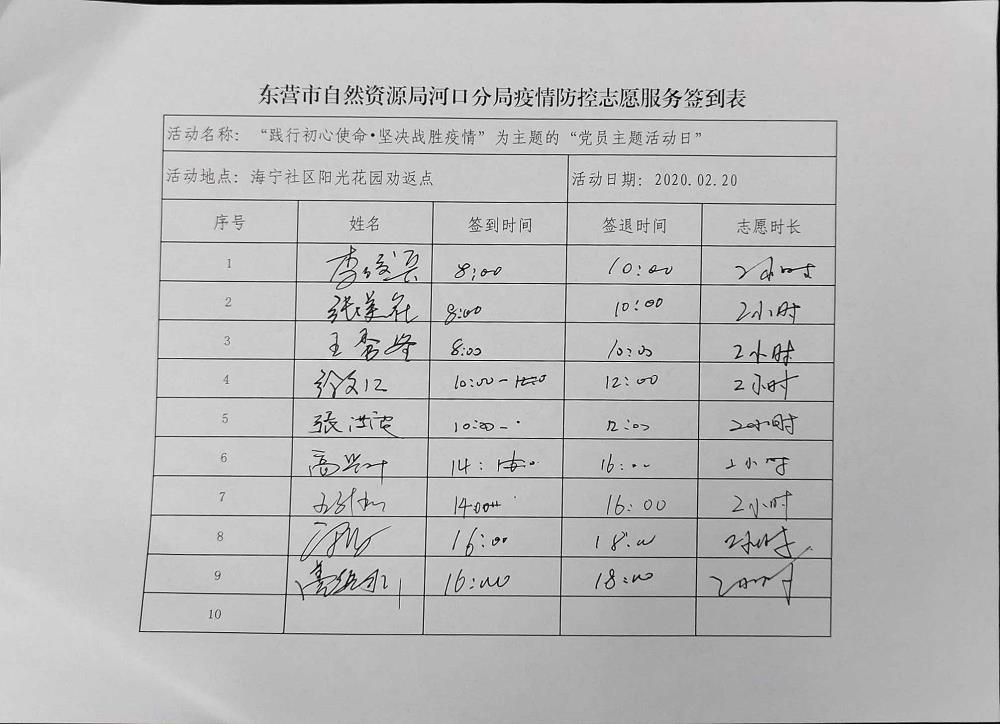 东营市自然资源局河口分局疫情防控志愿服务签到表
活动名称：“践行初心使命·坚决战胜疫情”为主题的“党员主题活动日”
活动地点：海宁社区阳光花园劝返点 活动日期：2020.02.20
序号 姓名 签到时间 签退时间 志愿时长
1 8:00 10:00 2小时
2 8:00 10:00 2小时
3 8:00 10:00 2小时
4 10:00 12:00 2小时
5 张洪 10:00 12:00 2小时
6 14: 16:00 2小时
7 14:00 16:00 2小时
8 16:00 18:00 2小时
9 16:00 18:00 2小时
10